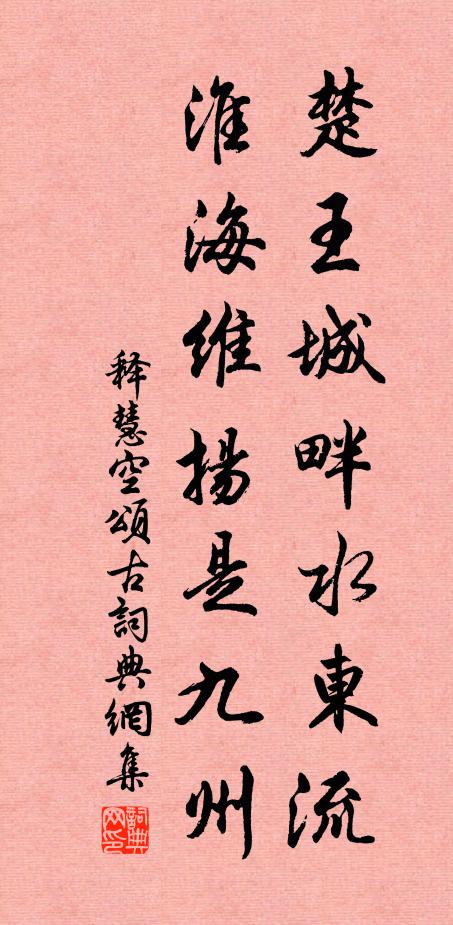 楚王城畔水東流
淮海維揚是九州
释慧空頌古詞典網集
詞典网印